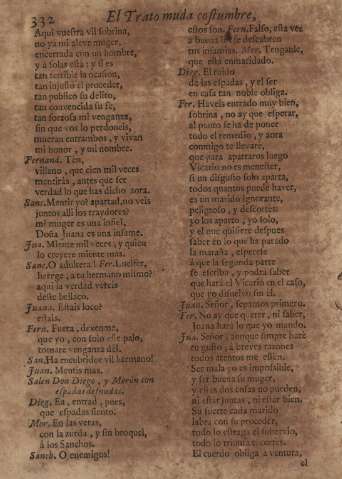 332 El Trato muda costumbre,
Aqui vuestra vil sobrina,
no ya mi aleve muger,
encerrada con un hombre,
y à solas està; y si es
tan terrible la ocasion,
tan injusto el proceder,
tan publico su delito,
tan convencida su fe,
tan forzosa mi venganza,
sin que vos lo perdoneis,
mueran entrambos, y vivan
mi honor, y mi nombre.
Fernand. Ten,
villano, que cien mil veces
mentiràs, antes que sea
verdad lo que has dicho aora.
Sanc. Mentir yo? apartad, no veis
juntos alli los traydores?
mi muger es una infiel,
Doña Juana es una infame.
Jua. Miente mil veces, y quien
lo creyere miente mas.
Sanc. O adultera! Fer.
herege, a tu hermano mismo?
aqui la verdad vereis
deste bellaco.
Juana. Estais loco?
estais.
Fern. Fuera, dexenme,
que yo, con solo este palo,
tomarè venganza dèl.
San. Ha mentidote vil hermano!
Juan. Mentis mas.
Salen Don Diego, y Moròn con
espadas desnudas.
Dieg. Ea, entrad, pues,
que espadas siento.
Mor. En las veras,
con la zurda, y sin broquel,
à los Sanchos.
Sanch. O enemigos!
essos son. Fern. Falso, esta vez
a buena luz se descubren
tus infamias. Mor. Tenganle,
que està enmaridado.
Dieg. El ruido
de las espadas, y el ser
en casa tan noble obliga.
Fer. Haveis entrado muy bien,
sobrina, no ay que esperar,
al punto se ha de poner
todo el remedio, y aora
conmigo te llevarè,
que para apartaros luego
Vicario no es menester,
si un disgusto solo aparta,
todos quantos puede haver,
es un marido ignorante,
peligroso, y descortès:
yo los aparto, yo solo,
y el que quisiere despues
saber en lo que ha parado
la maraña, esperese
à que la segunda parte
se escriba, y podrà saber
que harà el Vicario en el caso,
que yo dissuelvo sin èl.
Juan. Señor, sepamos primero.
Fer. No ay que querer, ni saber,
Juana harà lo que yo mando.
Jua. Señor, aunque siempre harè
tu gusto, à breves razones
todos atentos me esten.
Ser mala yo es impossible,
y ser buena su muger,
y essas dos cosas no pueden,
ni estàr juntas, ni estàr bien.
Su suerte cada marido
labra con su proceder,
todo lo estraga el sobervio,
todo lo triunfa el cortès.
El cuerdo obliga à ventura,
el